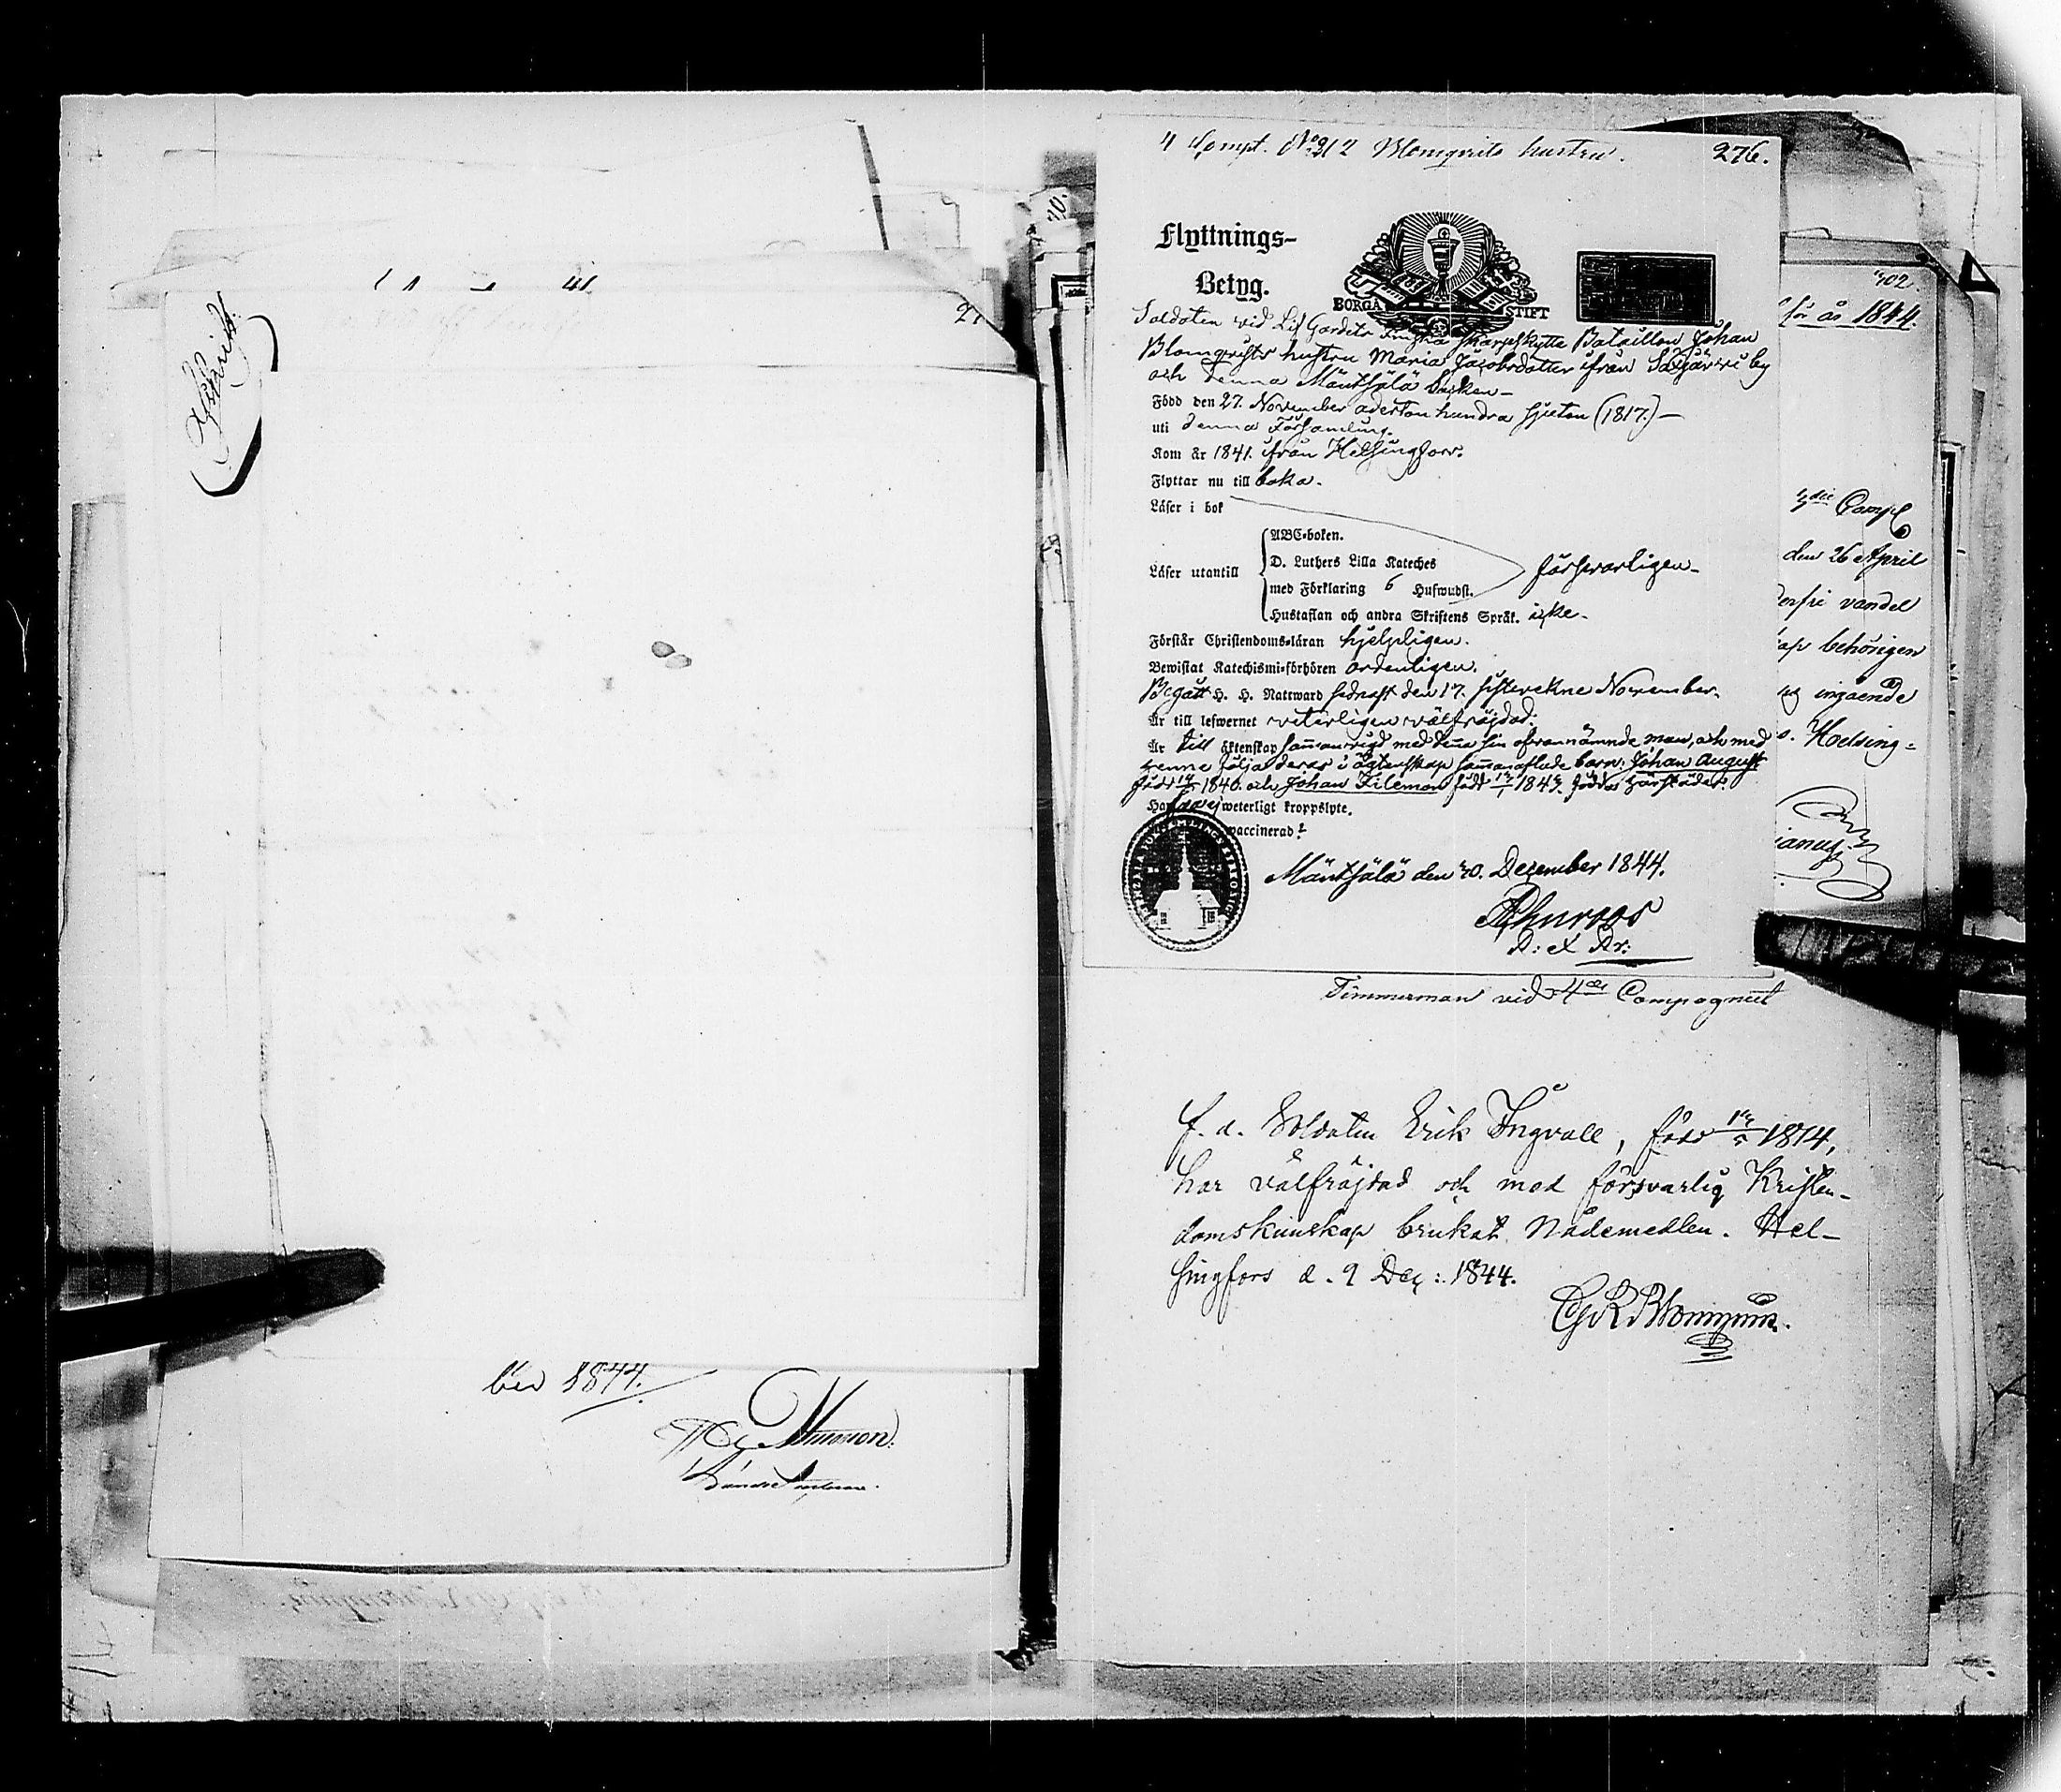 Afskrift.
ber 1844.
4 Compt. No 212 Blomqvists hustru. 276.
Flyttnings-
Betyg.
BORGÅ STIFT
Soldaten vid Lif Gardets Finska Skarpskytte Bataillon Johan
Blomqvists hustru Maria Jacobsdotter ifrån Saljärvi by
och denna Mäntsälä Socken –
Född den 27. November aderton hundra sjuton (1817.) –
uti denna Församling.
Kom år 1841. ifrån Helsingfors.
Flyttar nu till baka.
Läser i bok
Läser utantill
ABC-boken.
D. Luthers Lilla Kateches
med Förklaring 6 Hufwudst.
försvarligen –
Hustaflan och andra Skriftens Språk. icke –
Förstår Christendoms-läran hjelpligen.
Bewistat Katechismi-förhören ordentligen.
Begått H. H. Nattward sednast den 17. sistvekne November.
Är till lefwernet veterligen välfräjdad.
Är till äktenskap sammanvigd med denna sin ofvannämnde man, och med
henne följa deras i ägtenskap sammanaflade barn: Johan August
född 1840. och Johan Fileman född 1843. födda härstädes.
Har ej weterligt kroppslyte.
vaccinerad?
Mäntsälä den 30. December 1844.
Timmerman vid 4de Compagniet
f. d. Soldaten Erik Ingvall, född 1814,
har välfräjdad och med försvarlig Kristen-
domskunskap brukat Nådemedlen. Hel-
singfors d. 9 Dec: 1844.
302.
för år 1844.
3die Comp
den 26 April
vandel
behörigen
ingående
Helsing=